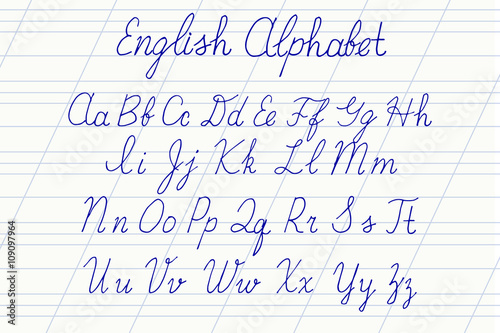 English Alphabet
Aa Bb Cc Dd Ee Ff Gg Hh
Ii Jj Kk Ll Mm
Nn Oo Pp Qq Rr Ss Tt
Uu Vv Ww Xx Yy Zz
109097964
Adobe Stock